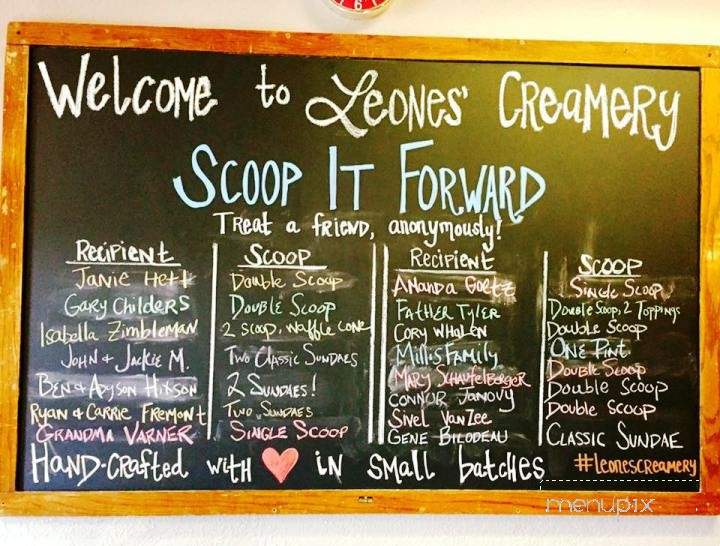 Welcome to Leones' Creamery
Scoop It Forward
Treat a friend, anonymously!
Recipient Scoop Recipient Scoop
Janie Hett Double Scoop Ananda Goetz Single Scoop
Gary Childers Double Scoop Father Tyler Double Scoop, 2 Toppings
Isabella Zimbleman 2 scoop, waffle cone Cory Whalen Double Scoop
John + Jackie M. Two Classic Sundaes Millis Family One Pint
Ben & Adyson Hixson 2 Sundaes! Mary Schautelberger Double Scoop
Ryan & Carrie Fremont Two Sundaes Connor Janovy Double Scoop
Grandma Varner Single Scoop Sivel VanZee Double Scoop
Gene Bilodeau Classic Sundae
Hand-crafted with ❤ in small batches #leonescreamery
menupix